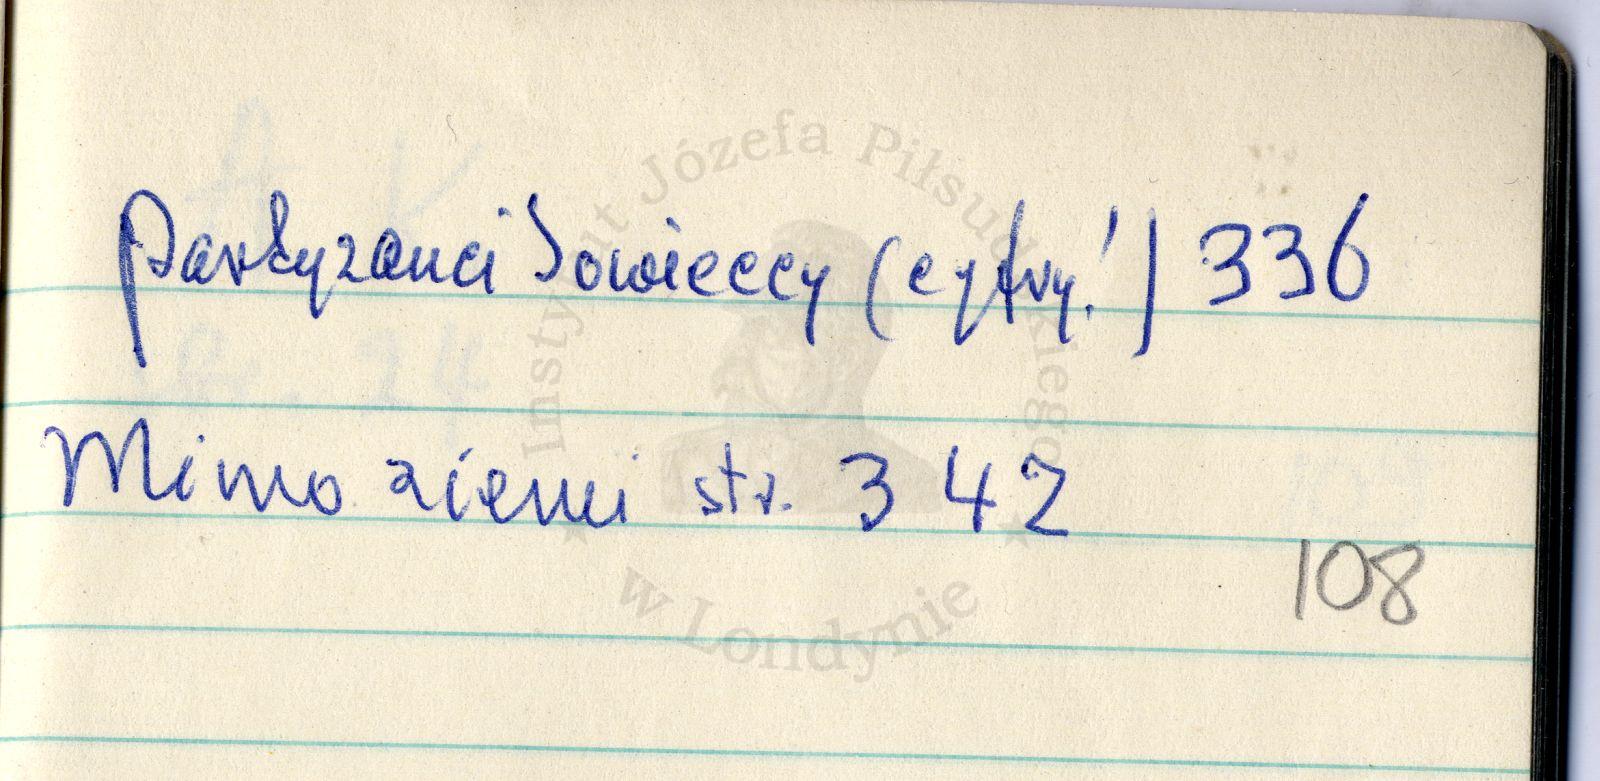 Partyzanci Sowieccy (cyfry!) 336
Mimo ziemi str. 342
108
Instytut Józefa Piłsudskiego
w Londynie